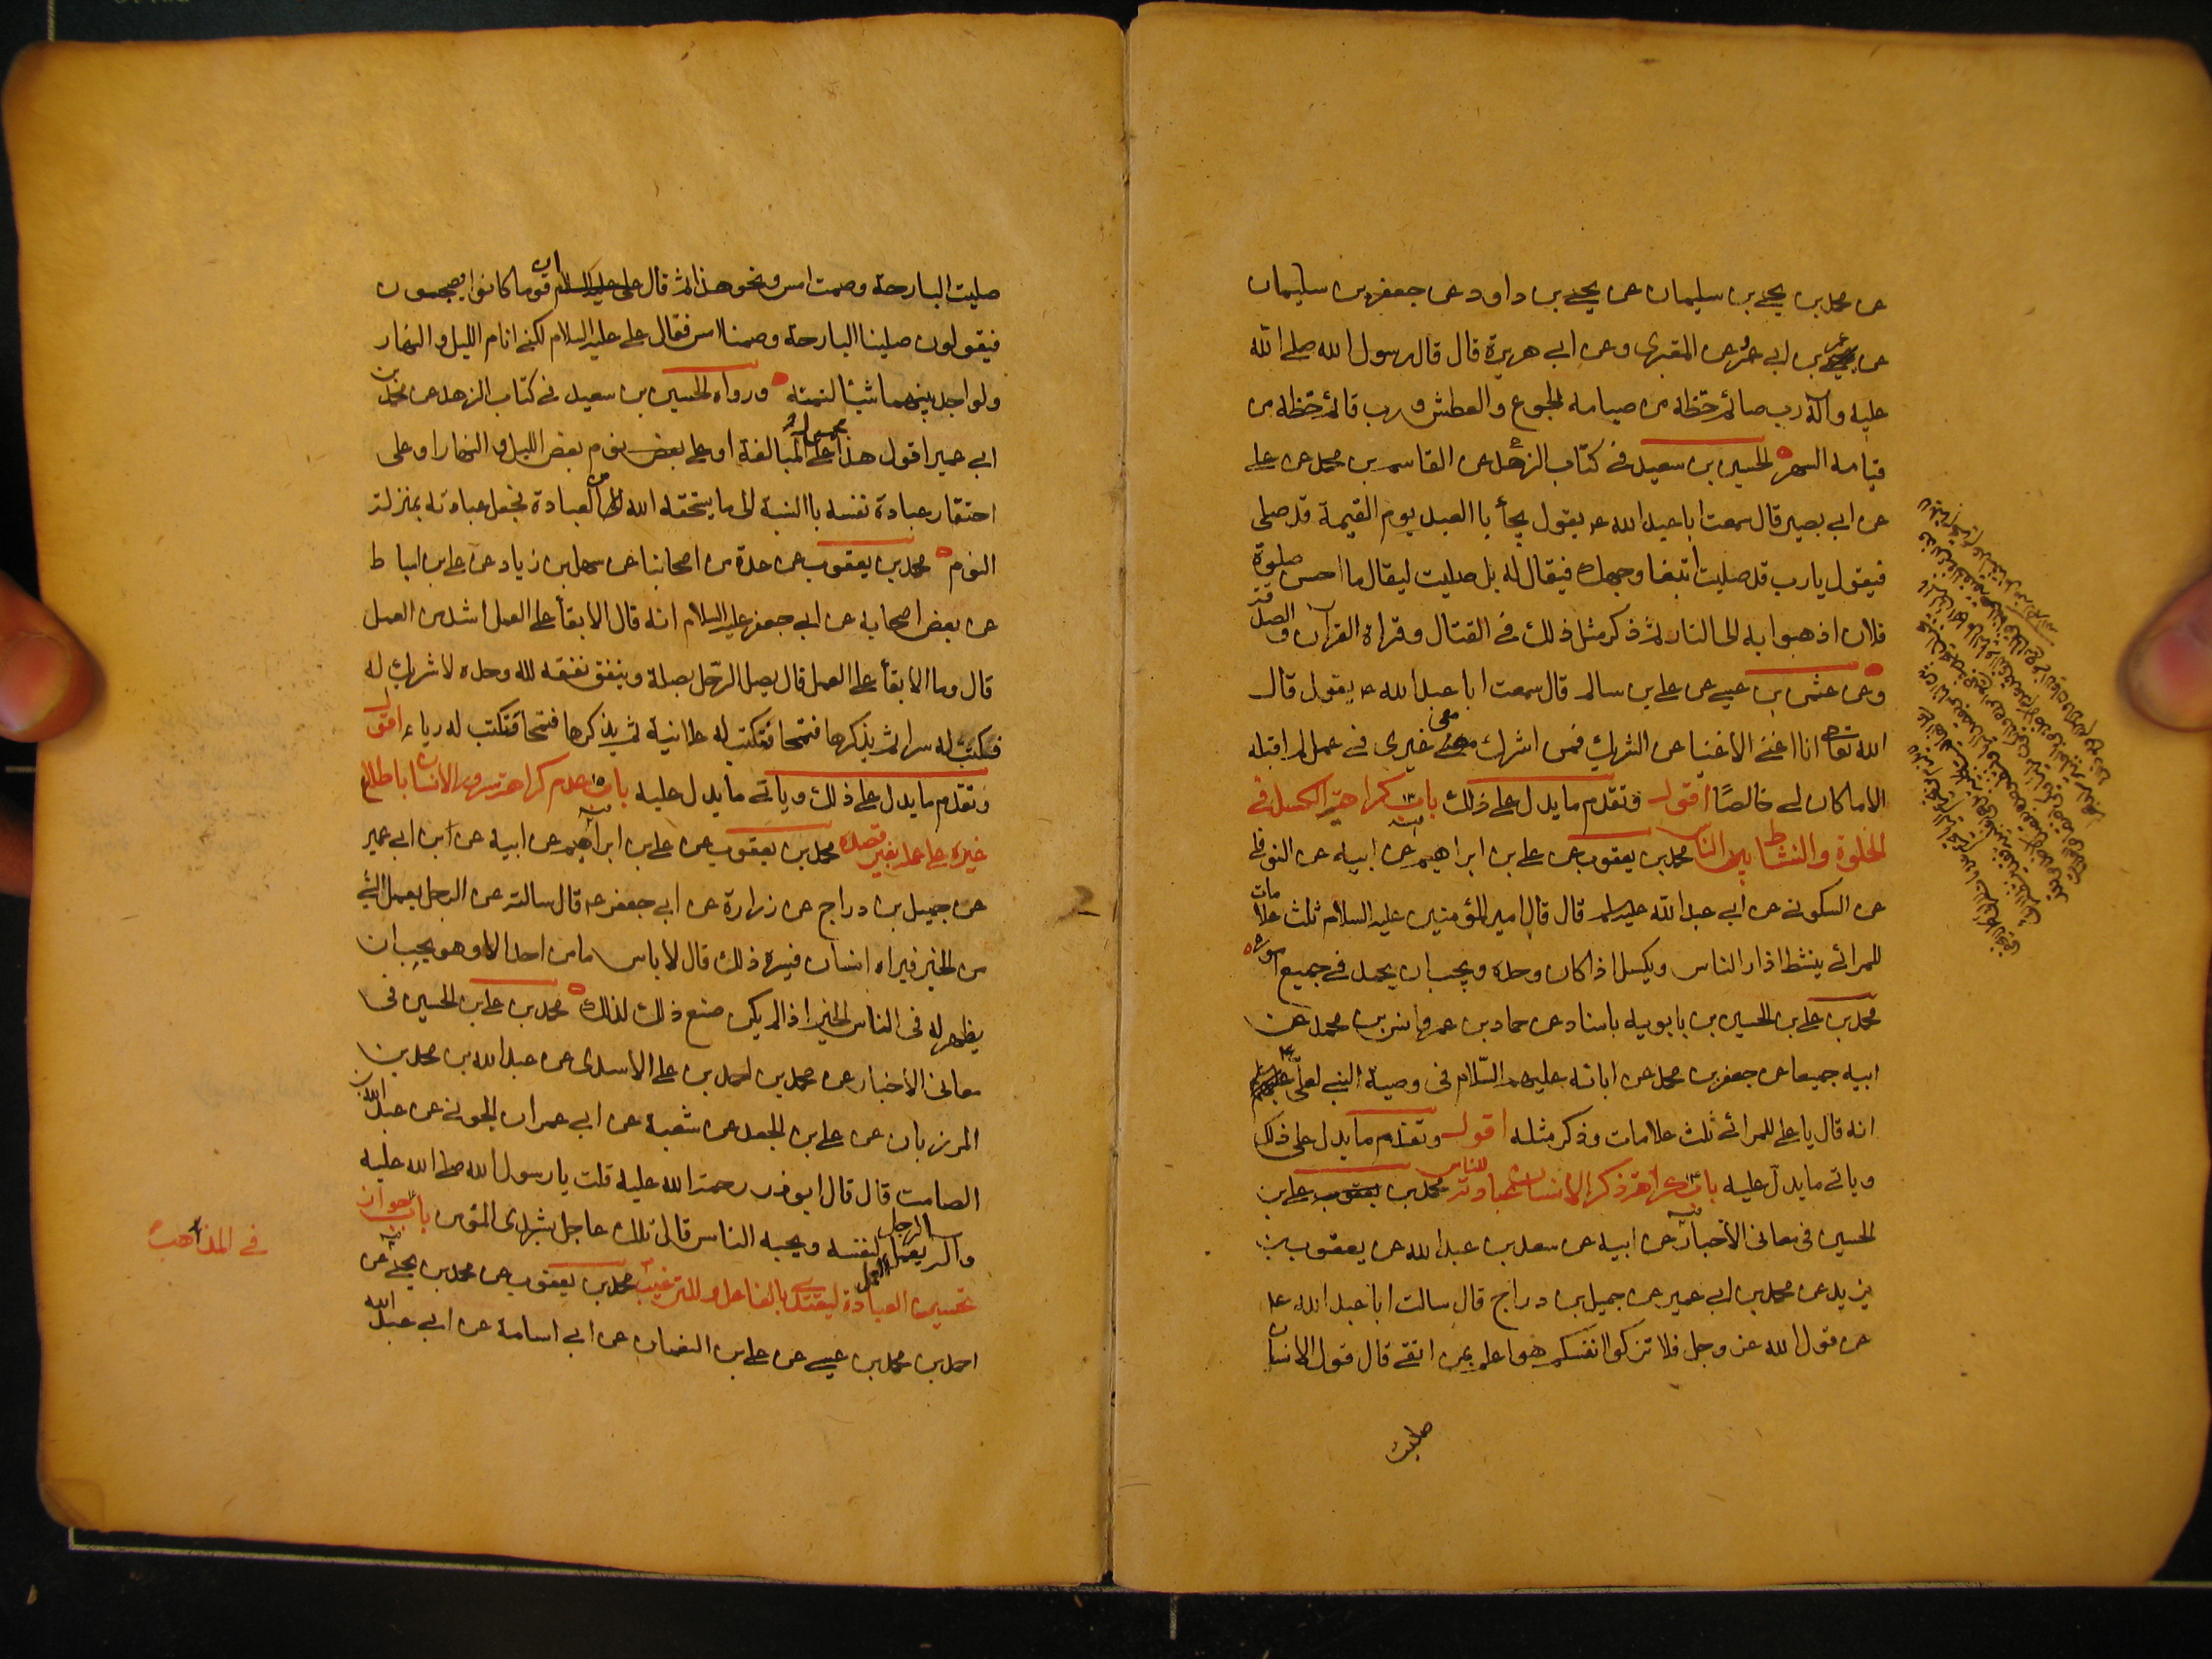 عن محمد بن يحيى بن سليمان عن يحيى بن داود عن جعفر بن سليمان
عن عمر بن ابي عمرو عن المقبري وعن ابي هريرة قال قال رسول الله صلى الله
عليه وآله رب صائم حظه من صيامه الجوع والعطش ورب قائم حظه من
قيامه السهر الحسين بن سعيد في كتاب الزهد عن القاسم بن محمد عن علي
عن ابي بصير قال سمعت ابا عبد الله ع يقول يجاء بالعبد يوم القيمة قد صلى
فيقول يا رب قد صليت ابتغاء وجهك فيقال له بل صليت ليقال ما احسن صلوة
فلان اذهبوا به الى النار ثم ذكر مثل ذلك في القتال وقراة القران والصدقة
وعن عثمن بن عيسى عن علي بن سالم قال سمعت ابا عبد الله ع يقول قال
الله تعالى انا اغنى الاغنيا عن الشريك فمن اشرك معي غيري في عمل لم اقبله
الا ما كان لي خالصًا اقول وتقدم ما يدل على ذلك باب ١٣ كراهية الكسل في
الخلوة والنشاط بين الناس محمد بن يعقوب عن علي بن ابراهيم عن ابيه عن النوفلي
عن السكوني عن ابي عبد الله عليه السلم قال قال امير المؤمنين عليه السلام ثلث علامات
للمرائي ينشط اذا راى الناس ويكسل اذا كان وحده ويحب ان يحمد في جميع اموره
محمد بن علي بن الحسين بن بابويه باسناده عن حماد بن عمرو وانس بن محمد عن
ابيه جميعا عن جعفر بن محمد عن ابائه عليهم السلام في وصية النبي لعلي
انه قال يا علي للمرائي ثلث علامات وذكر مثله اقول وتقدم ما يدل على ذلك
وياتي ما يدل عليه باب ١٤ كراهة ذكر الانسان عبادته للناس محمد بن علي بن
الحسين في معاني الأخبار عن ابيه عن سعد بن عبد الله عن يعقوب بن
يزيد عن محمد بن ابي عمير عن جميل بن دراج قال سالت ابا عبد الله ع
عن قول الله عز وجل فلا تزكوا انفسكم هو اعلم بمن اتقى قال قول الانسان
صليت
صليت البارحة وصمت امس ونحو هذا ثم قال ان قوما كانوا يصبحون
فيقولون صلينا البارحة وصمنا امس فقال علي عليه السلام لكني انام الليل والنهار
ولو اجد بينهما شيئا لنمته ورواه الحسين بن سعيد في كتاب الزهد عن محمد بن
ابي عمير اقول هذا محمول على المبالغة او على بعض نوم بعض الليل والنهار او على
احتقار عبادة نفسه بالنسبة الى ما يستحقه الله من العبادة فجعل عبادته بمنزلة
النوم محمد بن يعقوب عن عدة من اصحابنا عن سهل بن زياد عن علي بن اسباط
عن بعض اصحابه عن ابي جعفر عليه السلام انه قال الابقاء على العمل اشد من العمل
قال وما الابقاء على العمل قال يصل الرجل بصلة وينفق نفقة لله وحده لا شريك له
فكتبت له سرا ثم يذكرها فتمحا فتكتب له علانية ثم يذكرها فتمحا فتكتب له رياء اقول
وتقدم ما يدل على ذلك وياتي ما يدل عليه باب ١٥ عدم كراهة سرور الانسان باطلاع
غيره على عمله بغير قصده محمد بن يعقوب عن علي بن ابراهيم عن ابيه عن ابن ابي عمير
عن جميل بن دراج عن زرارة عن ابي جعفر ع قال سالته عن الرجل يعمل الشي
من الخير فيراه انسان فيسره ذلك قال لا باس ما من احد الا وهو يحب ان
يظهر له في الناس الخير اذا لم يكن صنع ذلك لذلك محمد بن علي بن الحسين في
معاني الأخبار عن محمد بن احمد بن علي الأسدي عن عبد الله بن محمد بن
المرزبان عن علي بن الجعد عن شعبة عن ابي عمران الجوني عن عبد الله بن
الصامت قال قال ابو ذر رحمة الله عليه قلت يا رسول الله صلى الله عليه
واله الرجل يعمل العمل لنفسه ويحبه الناس قال تلك عاجل بشرى المؤمن باب ١٦ جواز
تحسين العبادة ليقتدى بالفاعل وللترغيب محمد بن يعقوب عن محمد بن يحيى عن
في المذهب
احمد بن محمد بن عيسى عن علي بن النعمان عن ابي اسامة عن ابي عبد الله